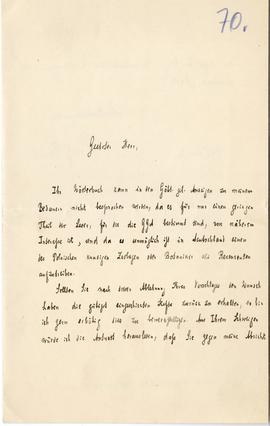 70.
Geehrter Herr,
Ihr Wörterbuch kann in den Gött. gel. Anzeigen zu meinem
Bedauern nicht besprochen werden, da es für nur einen geringen
Theil der Leser, für die die GgA bestimmt sind, von näherem
Interesse ist, und da es unmöglich ist in Deutschland einen
des Polnischen kundigen Zoologen oder Botaniker als Recensenten
aufzutreiben.
Sollten Sie nach dieser Ablehnung Ihres Vorschlages den Wunsch
haben die gütigst eingesandten Hefte zurück zu erhalten, so bin
ich gern erbötig dies zu bewerkstelligen. Aus Ihrem Schweigen
würde ich die Antwort herauslesen, daß Sie gegen meine Absicht